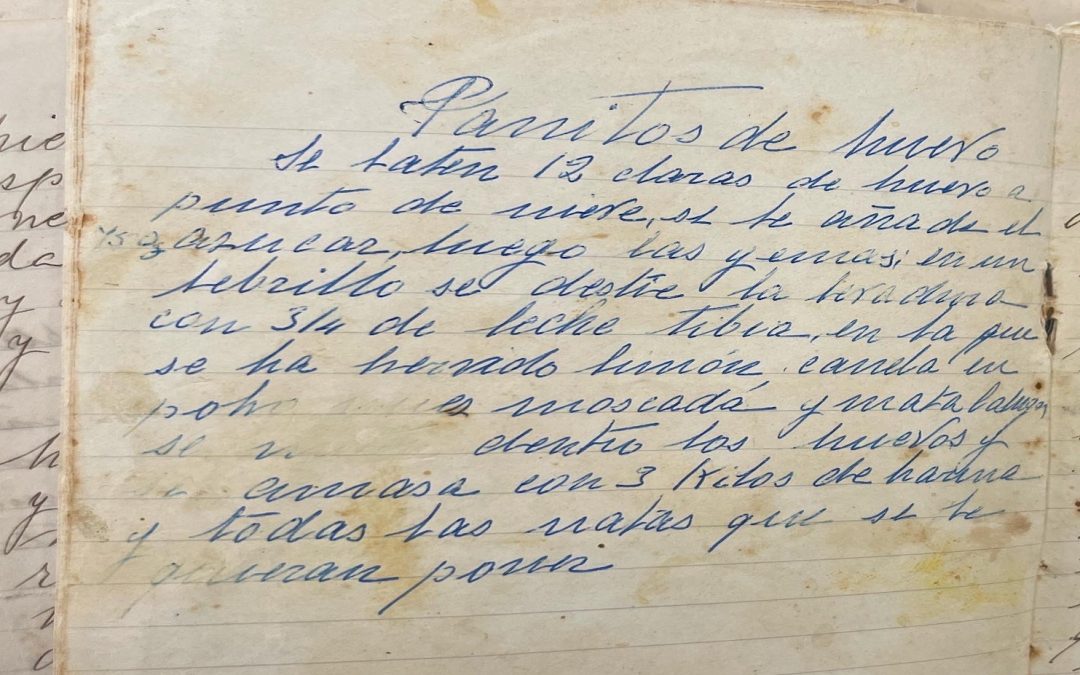 Panitos de huevo
Se baten 12 claras de huevo a
punto de nieve, se le añade el
azucar, luego las yemas; en un
lebrillo se deslie la levadura
con 3/4 de leche tibia, en la que
se ha hervido limón, canela en
moscada y matalahuga
se dentro los huevos y
amasa con 3 Kilos de harina
y todas las natas que se le
quieran poner